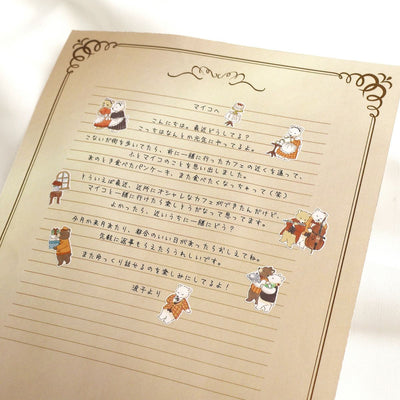 マイコへ
こんにちは。最近どうしてる？
こっちはなんとか元気にやってるよ。
こないだ街を歩いてたら、前に一緒に行ったカフェの近くを通って、
ふとマイコのことを思い出しました。
あのとき食べたパンケーキ、また食べたくなっちゃって(笑)
そういえば最近、近所にオシャレなカフェができたんだけど、
マイコと一緒に行けたら楽しそうだなって思ってます。
よかったら、近いうちに一緒にどう？
今月か来月あたり、都合のいい日があったらおしえて私。
気軽に返事もらえたらうれしいです。
またゆっくり話せるのを楽しみにしてるよ！
波子より